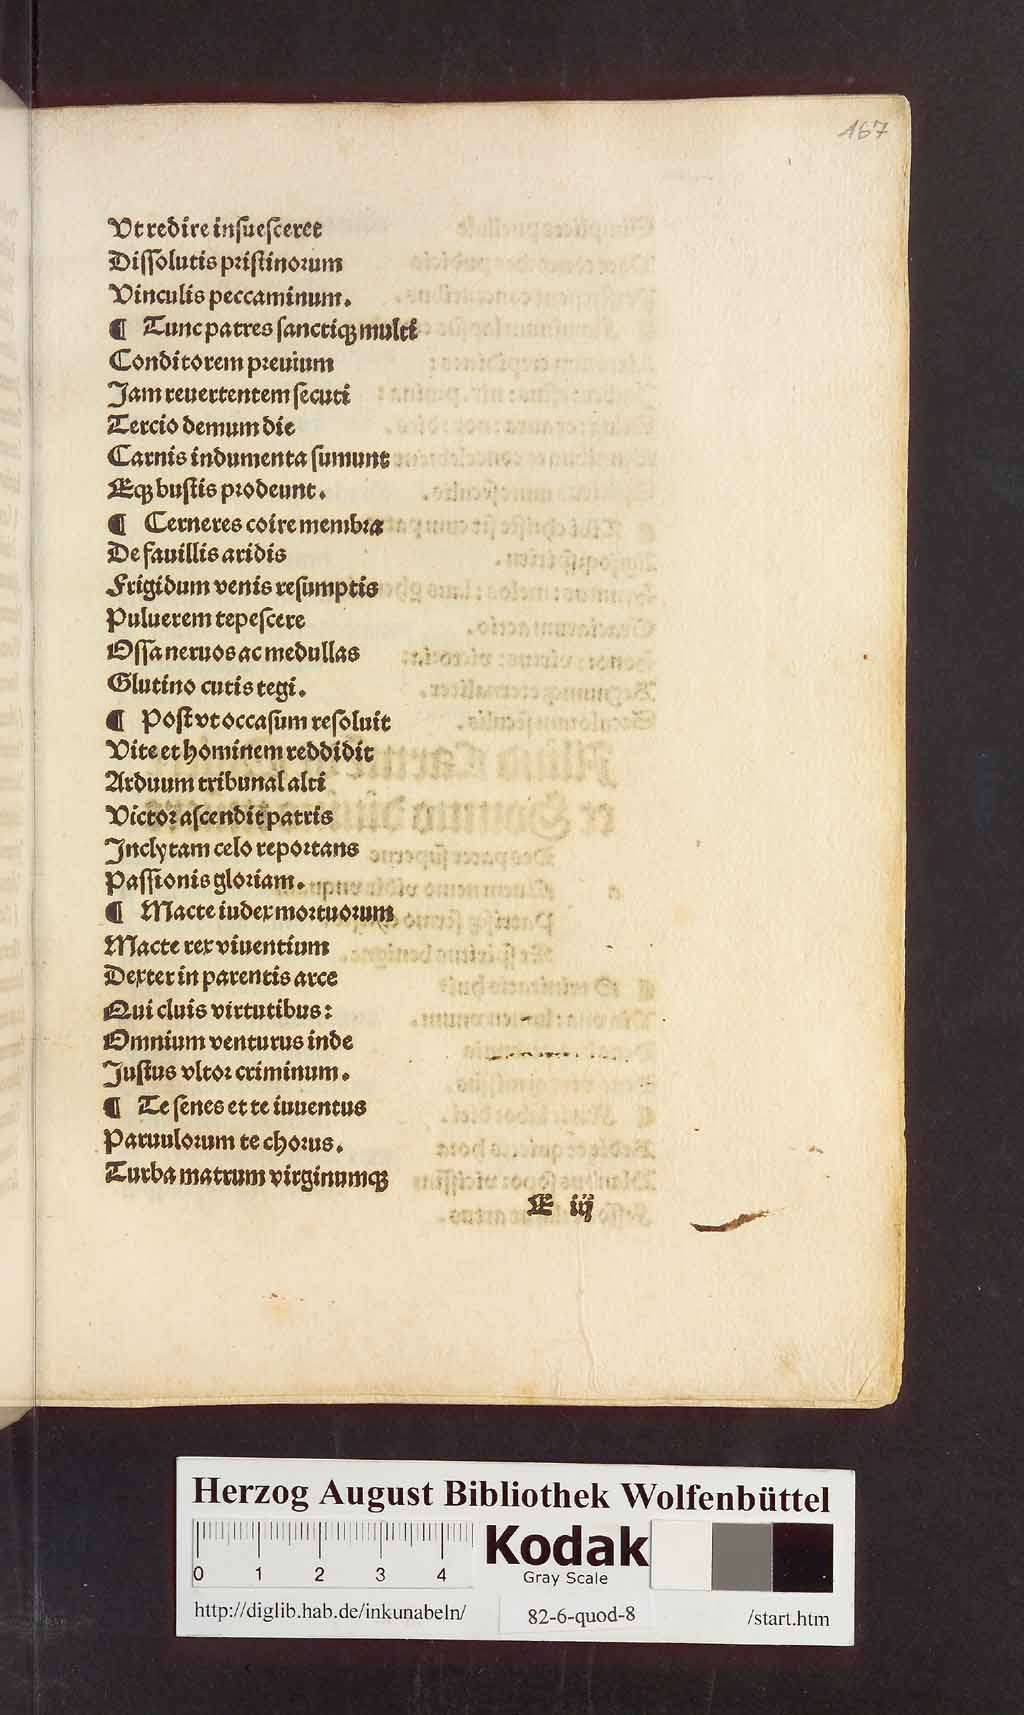 167
Vt redire insuesceret
Dissolutis pristinorum
Vinculis peccaminum.
¶ Tunc patres sanctiqꝫ multi
Conditorem preuium
Jam reuertentem secuti
Tercio demum die
Carnis indumenta sumunt
Eqꝫ bustis prodeunt.
¶ Cerneres coire membra
De fauillis aridis
Frigidum venis resumptis
Puluerem tepescere
Ossa neruos ac medullas
Glutino cutis tegi.
¶ Post vt occasum resoluit
Vite et hominem reddidit
Arduum tribunal alti
Victor ascendit patris
Inclytam celo reportans
Passionis gloriam.
¶ Macte iudex mortuorum
Macte rex viuentium
Dexter in parentis arce
Qui cluis virtutibus:
Omnium venturus inde
Justus vltor criminum.
¶ Te senes et te iuuentus
Paruulorum te chorus.
Turba matrum virginumqꝫ
E iij
Herzog August Bibliothek Wolfenbüttel
0 1 2 3 4
Kodak
Gray Scale
http://diglib.hab.de/inkunabeln/ 82-6-quod-8 /start.htm